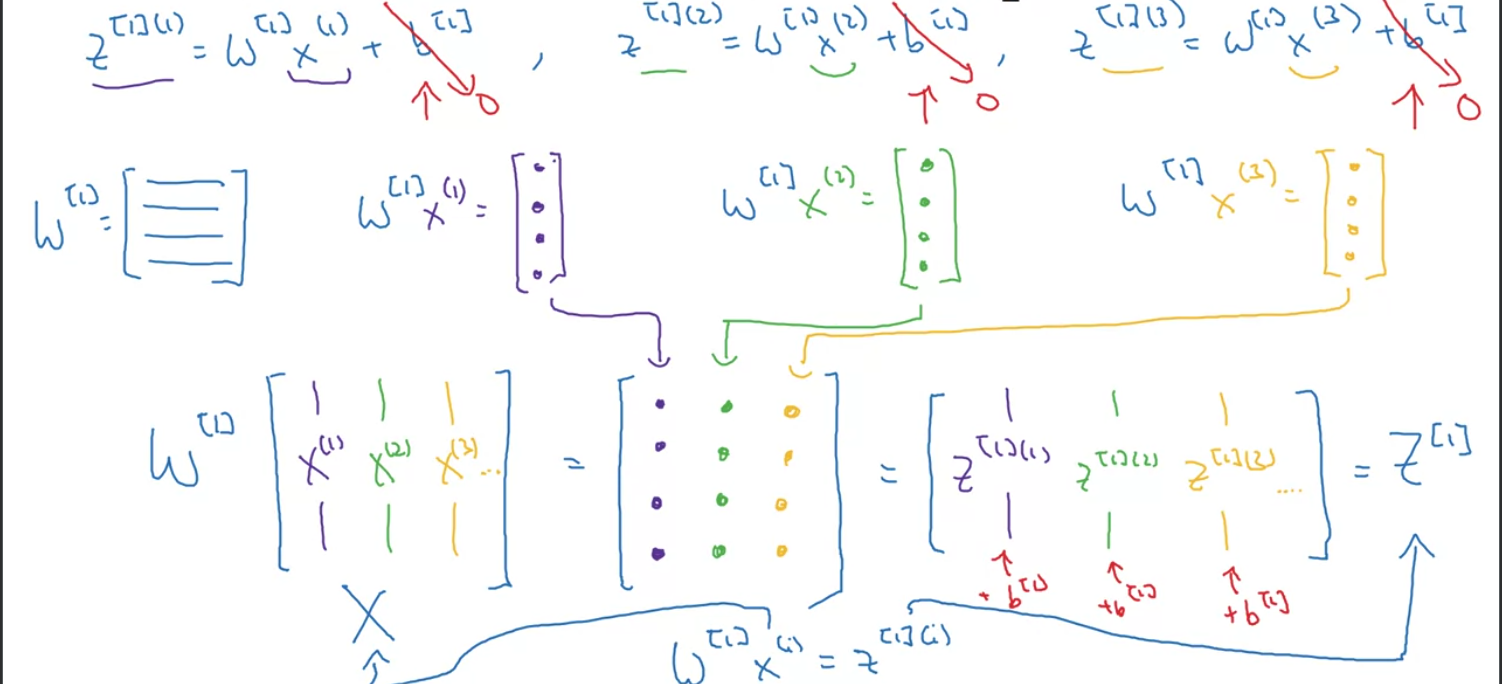 z^[1](1) = W^[1] x^(1) + b^[1] → 0 , z^[1](2) = W^[1] x^(2) + b^[1] → 0 , z^[1](3) = W^[1] x^(3) + b^[1] → 0
W^[1] = [ ] W^[1] x^(1) = [ ] W^[1] x^(2) = [ ] W^[1] x^(3) = [ ]
W^[1] [ x^(1) x^(2) x^(3) ... ] = [ ] = [ z^[1](1) z^[1](2) z^[1](3) .... ] = Z^[1]
+ b^[1] + b^[1] + b^[1]
X
W^[1] x^(i) = z^[1](i)